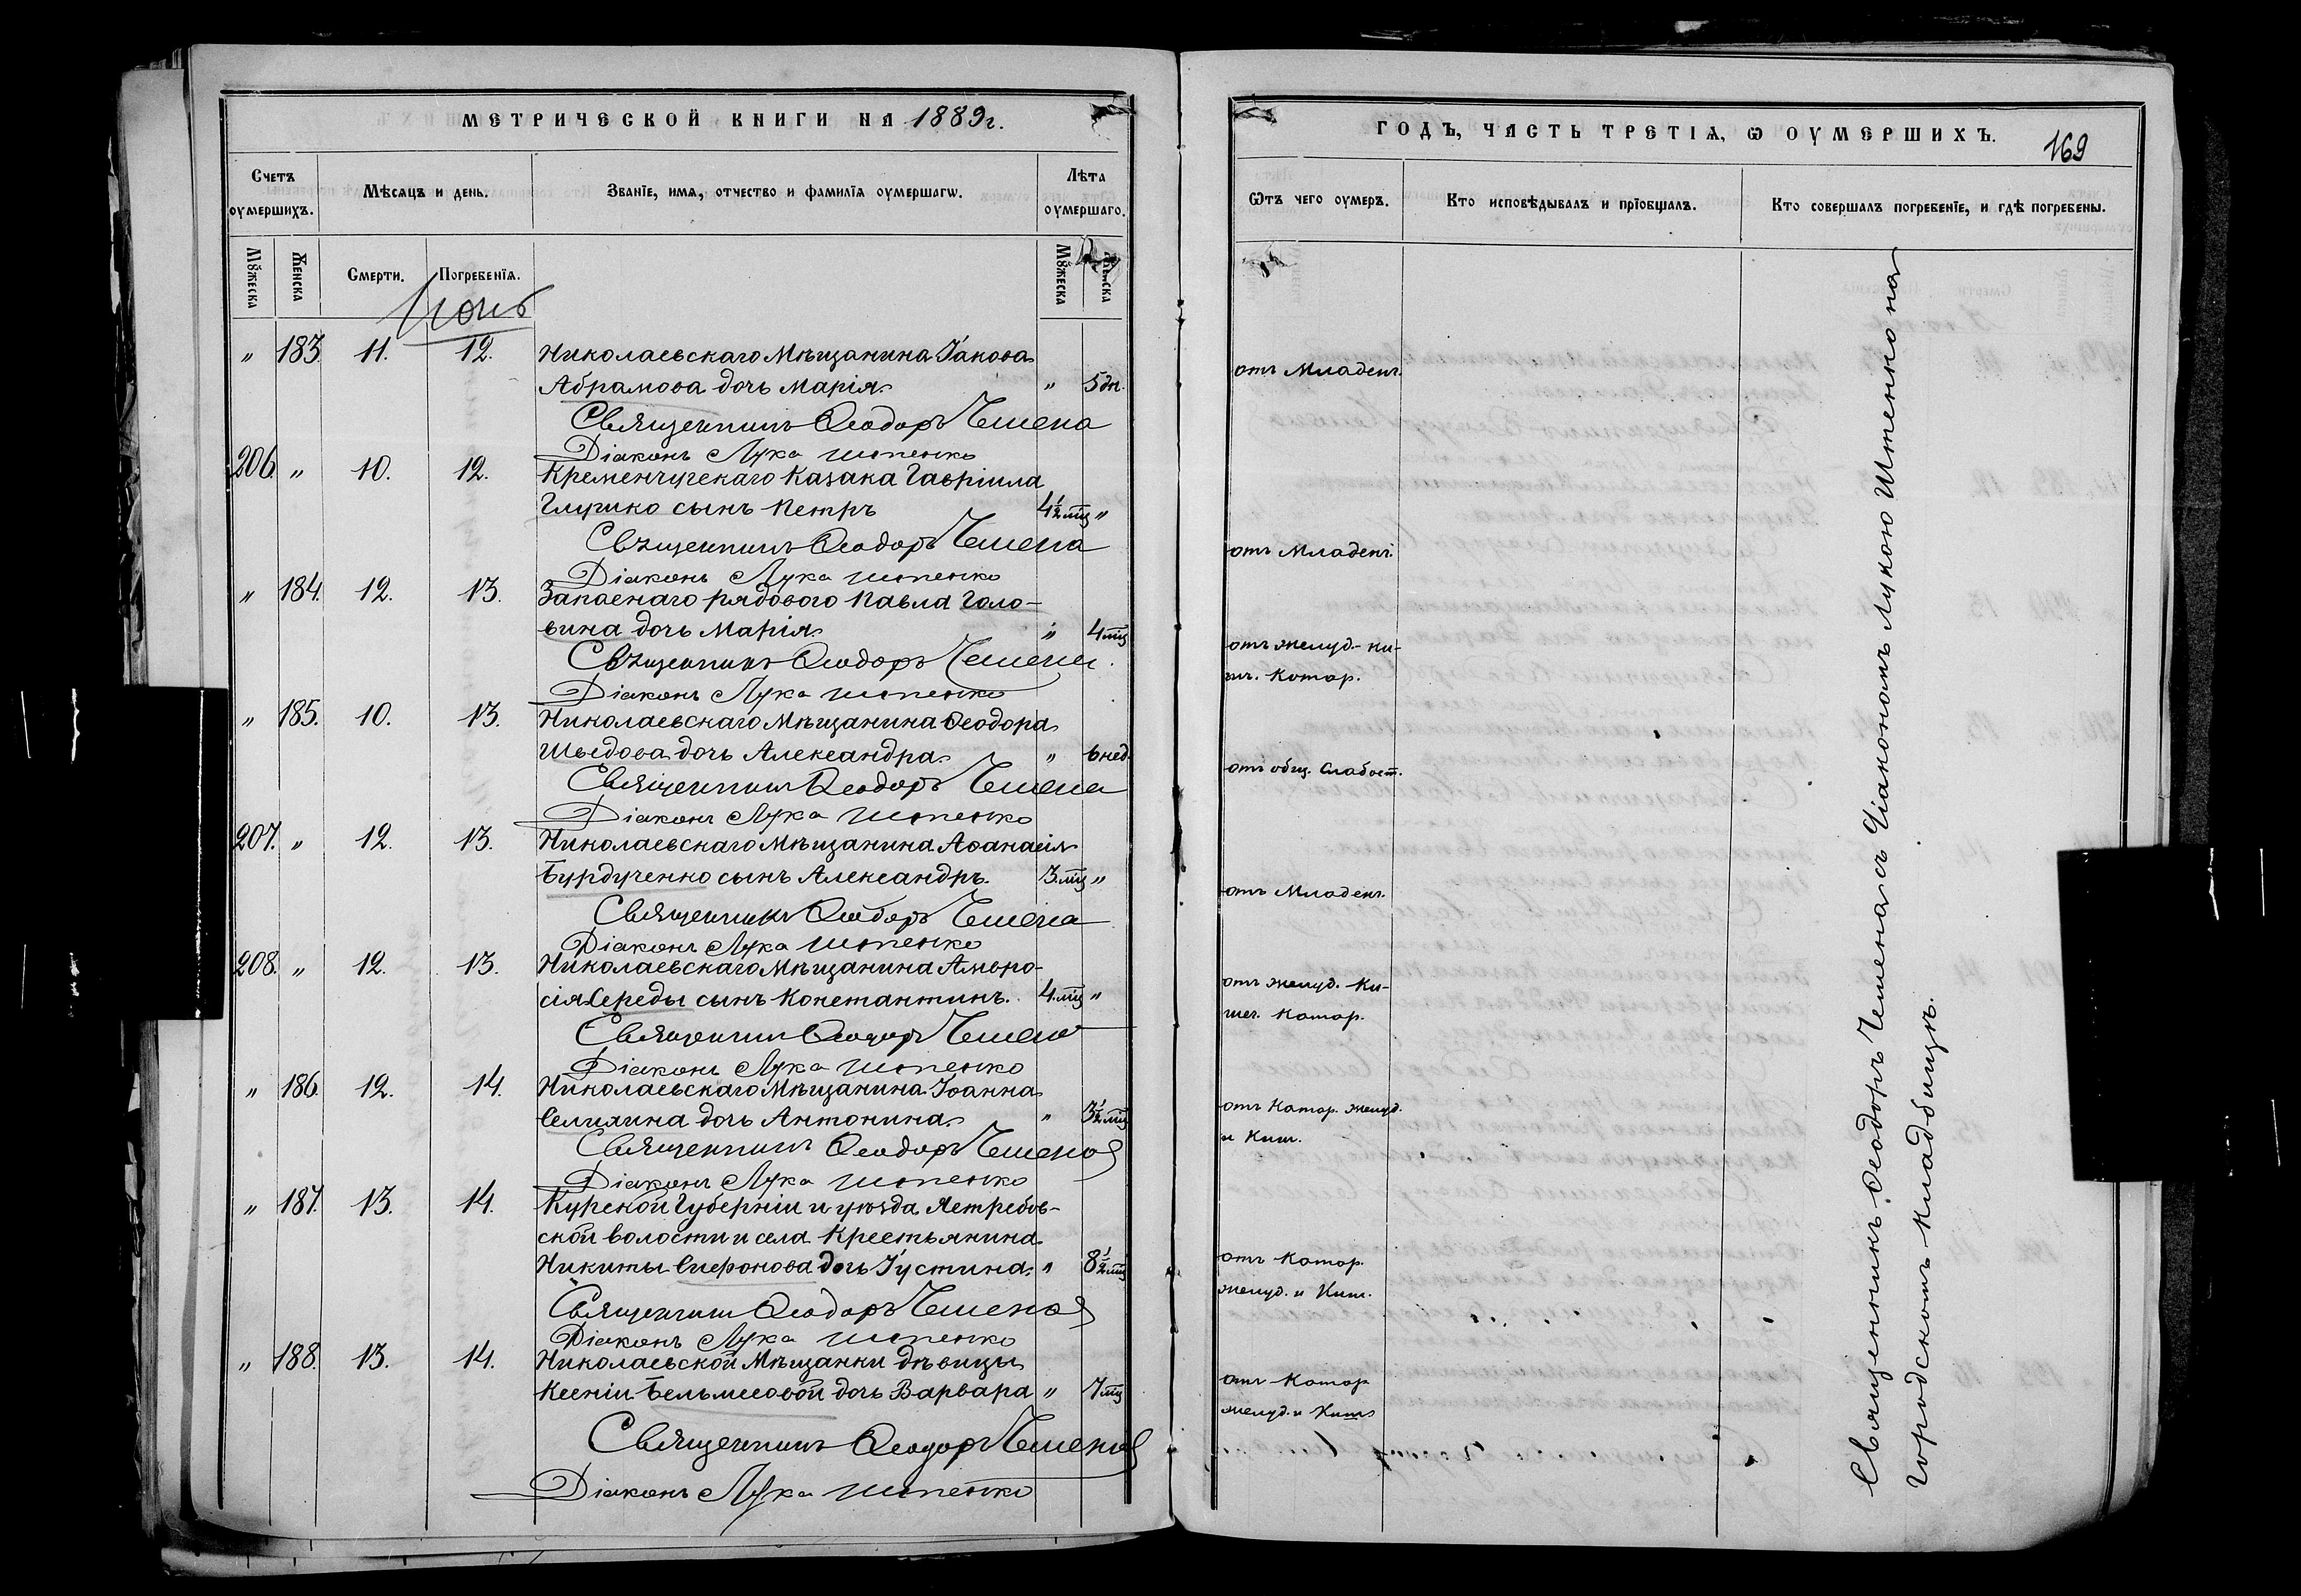 МЕТРИЧЕСКОЙ КНИГИ НА 1889г.
Счетъ оумершихъ.
Мѣсяцъ и день.
Званїе, имѧ, отчество и фамилїѧ оумершагѡ.
Лѣта оумершаго.
Мꙋжеска
Женска
Смерти.
Погребенїѧ.
Мꙋжеска
Женска
Іюнь
" 183. 11. 12. Николаевскаго Мѣщанина Іакова
Абрамова дочь Марія. " 5 дн.
Священникъ Ѳеодоръ Чемена
Діаконъ Лука Штенко
206. " 10. 12. Кременчугскаго Казака Гавріила
Глушко сынъ Петръ 4½ мц "
Священникъ Ѳеодоръ Чемена
Діаконъ Лука Штенко
" 184. 12. 13. Запаснаго рядоваго Павла Голо-
вина дочь Марія " 4 мц
Священникъ Ѳеодоръ Чемена
Діаконъ Лука Штенко
" 185. 10. 13. Николаевскаго Мѣщанина Ѳеодора
Шведова дочь Александра " 6 нед.
Священникъ Ѳеодоръ Чемена
Діаконъ Лука Штенко
207. " 12. 13. Николаевскаго Мѣщанина Аѳанасія
Бурдученко сынъ Александръ. 3 мц "
Священникъ Ѳеодоръ Чемена
Діаконъ Лука Штенко
208. " 12. 13. Николаевскаго Мѣщанина Амвро-
сія Середы сынъ Константинъ. 4 мц "
Священникъ Ѳеодоръ Чемена
Діаконъ Лука Штенко
" 186. 12. 14. Николаевскаго Мѣщанина Іоанна
Селихина дочь Антонина " 3½ мц
Священникъ Ѳеодоръ Чемена
Діаконъ Лука Штенко
" 187. 13. 14. Курской Губерніи и уѣзда Ястребов-
ской волости и села Крестьянина
Никиты Сафонова дочь Іустина. " 8½ мц
Священникъ Ѳеодоръ Чемена
Діаконъ Лука Штенко
" 188. 13. 14. Николаевской Мѣщанки дѣвицы
Ксеніи Бельмесовой дочь Варвара " 7 мц
Священникъ Ѳеодоръ Чемена
Діаконъ Лука Штенко
ГОДЪ, ЧАСТЬ ТРЕТІѦ, Ѡ ОУМЕРШИХЪ.
169
Ѿтъ чего оумеръ.
Кто исповѣдывалъ и прїобщалъ.
Кто совершалъ погребенїе, и гдѣ погребены.
отъ Младенч.
отъ Младенч.
отъ желуд.-ки-
шч. Катар.
отъ общ. Слабост.
отъ Младенч.
отъ желуд. Ки-
шеч. Катар.
отъ Катар. желуд.
и Киш.
отъ Катар.
желуд. и Киш.
отъ Катар
желуд. и Киш
Священникъ Ѳеодоръ Чемена съ Діакономъ Лукою Штенко на
Городскомъ кладбищѣ.